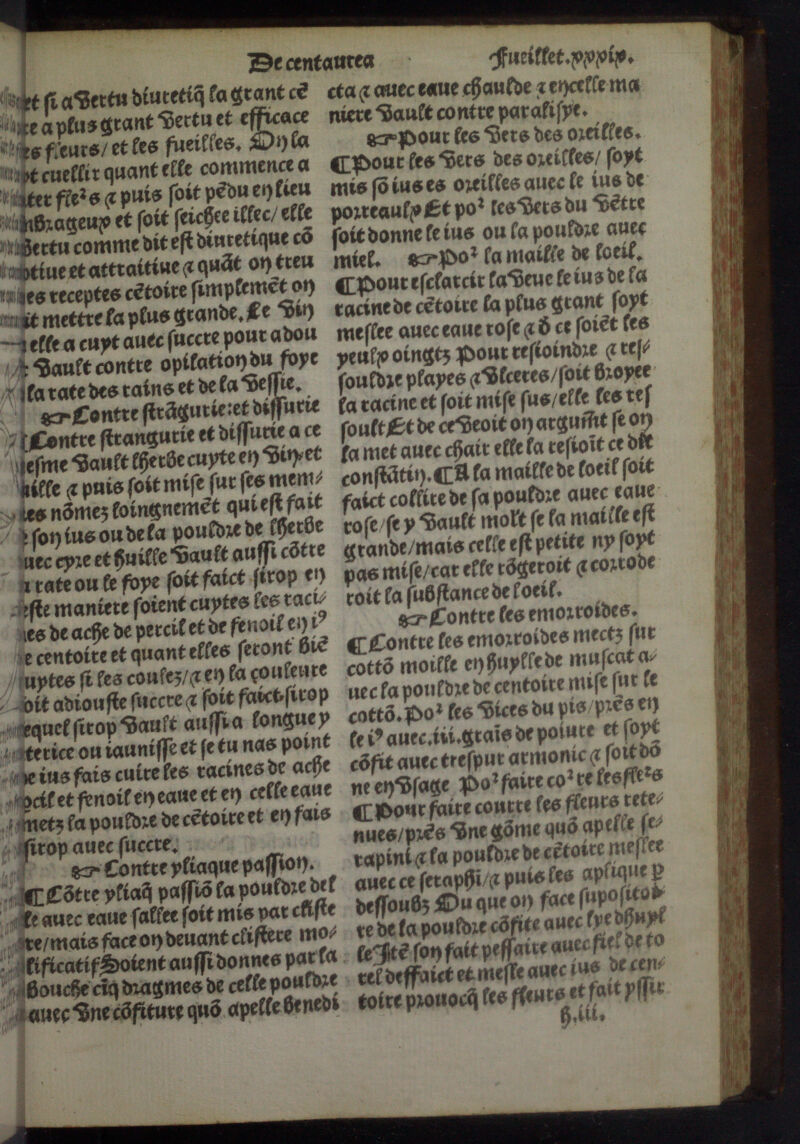 De centaurea
Fueillet.xxxix.
et si a vertu diureticq̃ la grant cẽ
re a plus grant vertu et efficace
fleurs/ et les fueilles. On la
cuellir quant elle commence a
ter fle²s ⁊ puis soit pẽdu en lieu
vmbrageux et soit seichee illec/ elle
vertu comme dit est diuretique cõ
ptiue et attraitiue ⁊ quãt on treu
es receptes cẽtoire simplemẽt on
it mettre la plus grande. Le vin
elle a cuyt auec succre pour adou
vault contre opilation du foye
la rate des rains et de la vessie.
☞ Contre strãgurie: et dissurie
Contre strangurie et dissurie a ce
mesme vault lherbe cuyte en vin et
huille ⁊ puis soit mise sur ses mem⸗
bres nõmez loingnemẽt qui est fait
son ius ou de la pouldre de lherbe
auec cyre et huille vault aussi cõtre
la rate ou le foye soit faict sirop en
ceste maniere soient cuytes les raci⸗
nes de ache de percil et de fenoil en i⁹
de centoire et quant elles seront biẽ
cuytes si les coulez/ ⁊ en la couleure
soit adiouste succre ⁊ soit faict sirop
lequel sirop vault aussi a longue y
cterice ou iaunisse et se tu nas point
de ius fais cuire les racines de ache
percil et fenoil en eaue et en celle eaue
metz la pouldre de cẽtoire et en fais
sirop auec succre.
☞ Contre yliaque passion.
¶ Cõtre yliaq̃ passiõ la pouldre del
le auec eaue sallee soit mis par cliste
re/mais face on deuant clistere mo⸗
lificatif Soient aussi donnes par la
bouche cĩq dragmes de celle pouldre
auec vne cõfiture quõ apelle benedi
cta ⁊ auec eaue chaulde ⁊ en celle ma
niere vault contre paralisye.
☞ Pour les vers des oreilles.
¶ Pour les vers des oreilles/ soyt
mis sõ ius es oreilles auec le ius de
porreaulx Et po² les vers du vẽtre
soit donne le ius ou la pouldre auec
miel. ☞ Po² la maille de loeil.
¶ Pour esclarcir la veue le ius de la
racine de cẽtoire la plus grant soyt
meslee auec eaue rose ⁊ d̃ ce soiẽt les
yeulx oingtz Pour resioindre ⁊ res⸗
souldre playes ⁊ vlceres/soit broyee
la racine et soit mise sus/elle les res
soult Et de ce veoit on argumẽt se on
la met auec chair elle la resioĩt ce dit
constãtin. ¶ A la maille de loeil soit
faict collire de sa pouldre auec eaue
rose/se y vault molt se la maille est
grande/mais celle est petite ny soyt
pas mise/car elle rõgeroit ⁊ corrode
roit la substance de loeil.
☞ Contre les emorroides.
¶ Contre les emorroides mectz sur
cottõ moille en huylle de muscat a⸗
uec la pouldre de centoire mise sur le
cottõ. Po² les vices du pis/prẽs en
le i⁹ auec .iii. grais de poiure et soyt
cõfit auec trespur armonic ⁊ soit dõ
ne en vsage Po² faire co²re les fle²s
¶ Pour faire courre les fleurs rete⸗
nues/prẽs vne gõme quõ apelle se⸗
rapini ⁊ la pouldre de cẽtoire meslee
auec ce seraphi/⁊ puis les aplique p
dessoubz Ou que on face supositoi
re de la pouldre cõfite auec lye dhuyl
le Itẽ son fait pessaire auec fiel de to
rel deffaict et mesle auec ius de cen⸗
toire prouocq̃ les fleurs et fait yssir
h.iii.